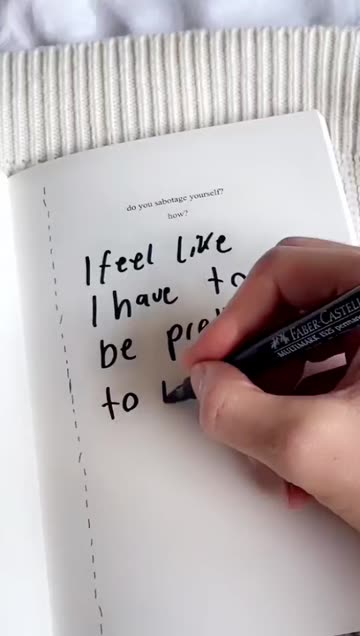 do you sabotage yourself?
how?
I feel like
I have to
be pre
to
FABER-CASTELL
MULTIMARK 1525 permanent